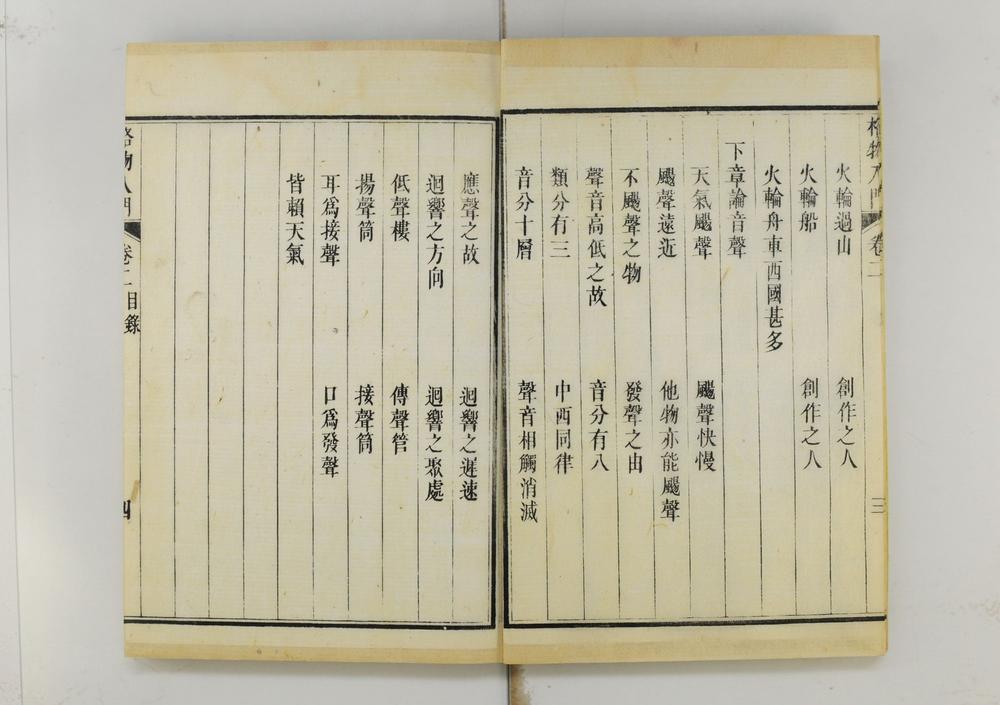 格物入門 卷二 三
火輪過山 創作之人
火輪船 創作之人
火輪舟車西國甚多
下章論音聲
天氣颺聲 颺聲快慢
颺聲遠近 他物亦能颺聲
不颺聲之物 發聲之由
聲音高低之故 音分有八
類分有三 中西同律
音分十層 聲音相觸消滅
應聲之故 迴響之遲速
迴響之方向 迴響之聚處
低聲樓 傳聲管
揚聲筒 接聲筒
耳爲接聲 口爲發聲
皆賴天氣
格物入門 卷二 目錄 四